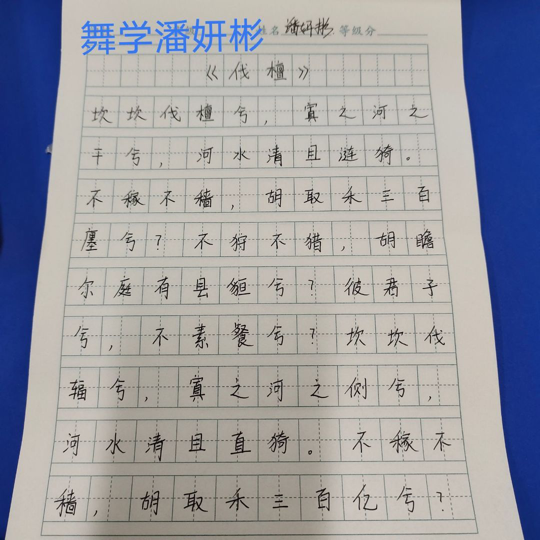 舞学潘妍彬
姓名 潘妍彬 等级分
《伐檀》
坎坎伐檀兮，寘之河之
干兮，河水清且涟猗。
不稼不穑，胡取禾三百
廛兮？不狩不猎，胡瞻
尔庭有县貆兮？彼君子
兮，不素餐兮？坎坎伐
辐兮，寘之河之侧兮，
河水清且直猗。不稼不
穑，胡取禾三百亿兮？